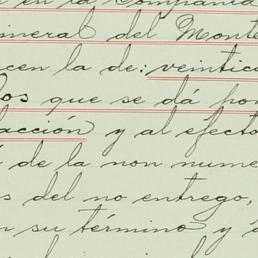 en la Compañía
mineral del Monte
cen la de: veintic
os que se dá por
acción y al efecto
de la non nume
s del no entrego,
n su término y